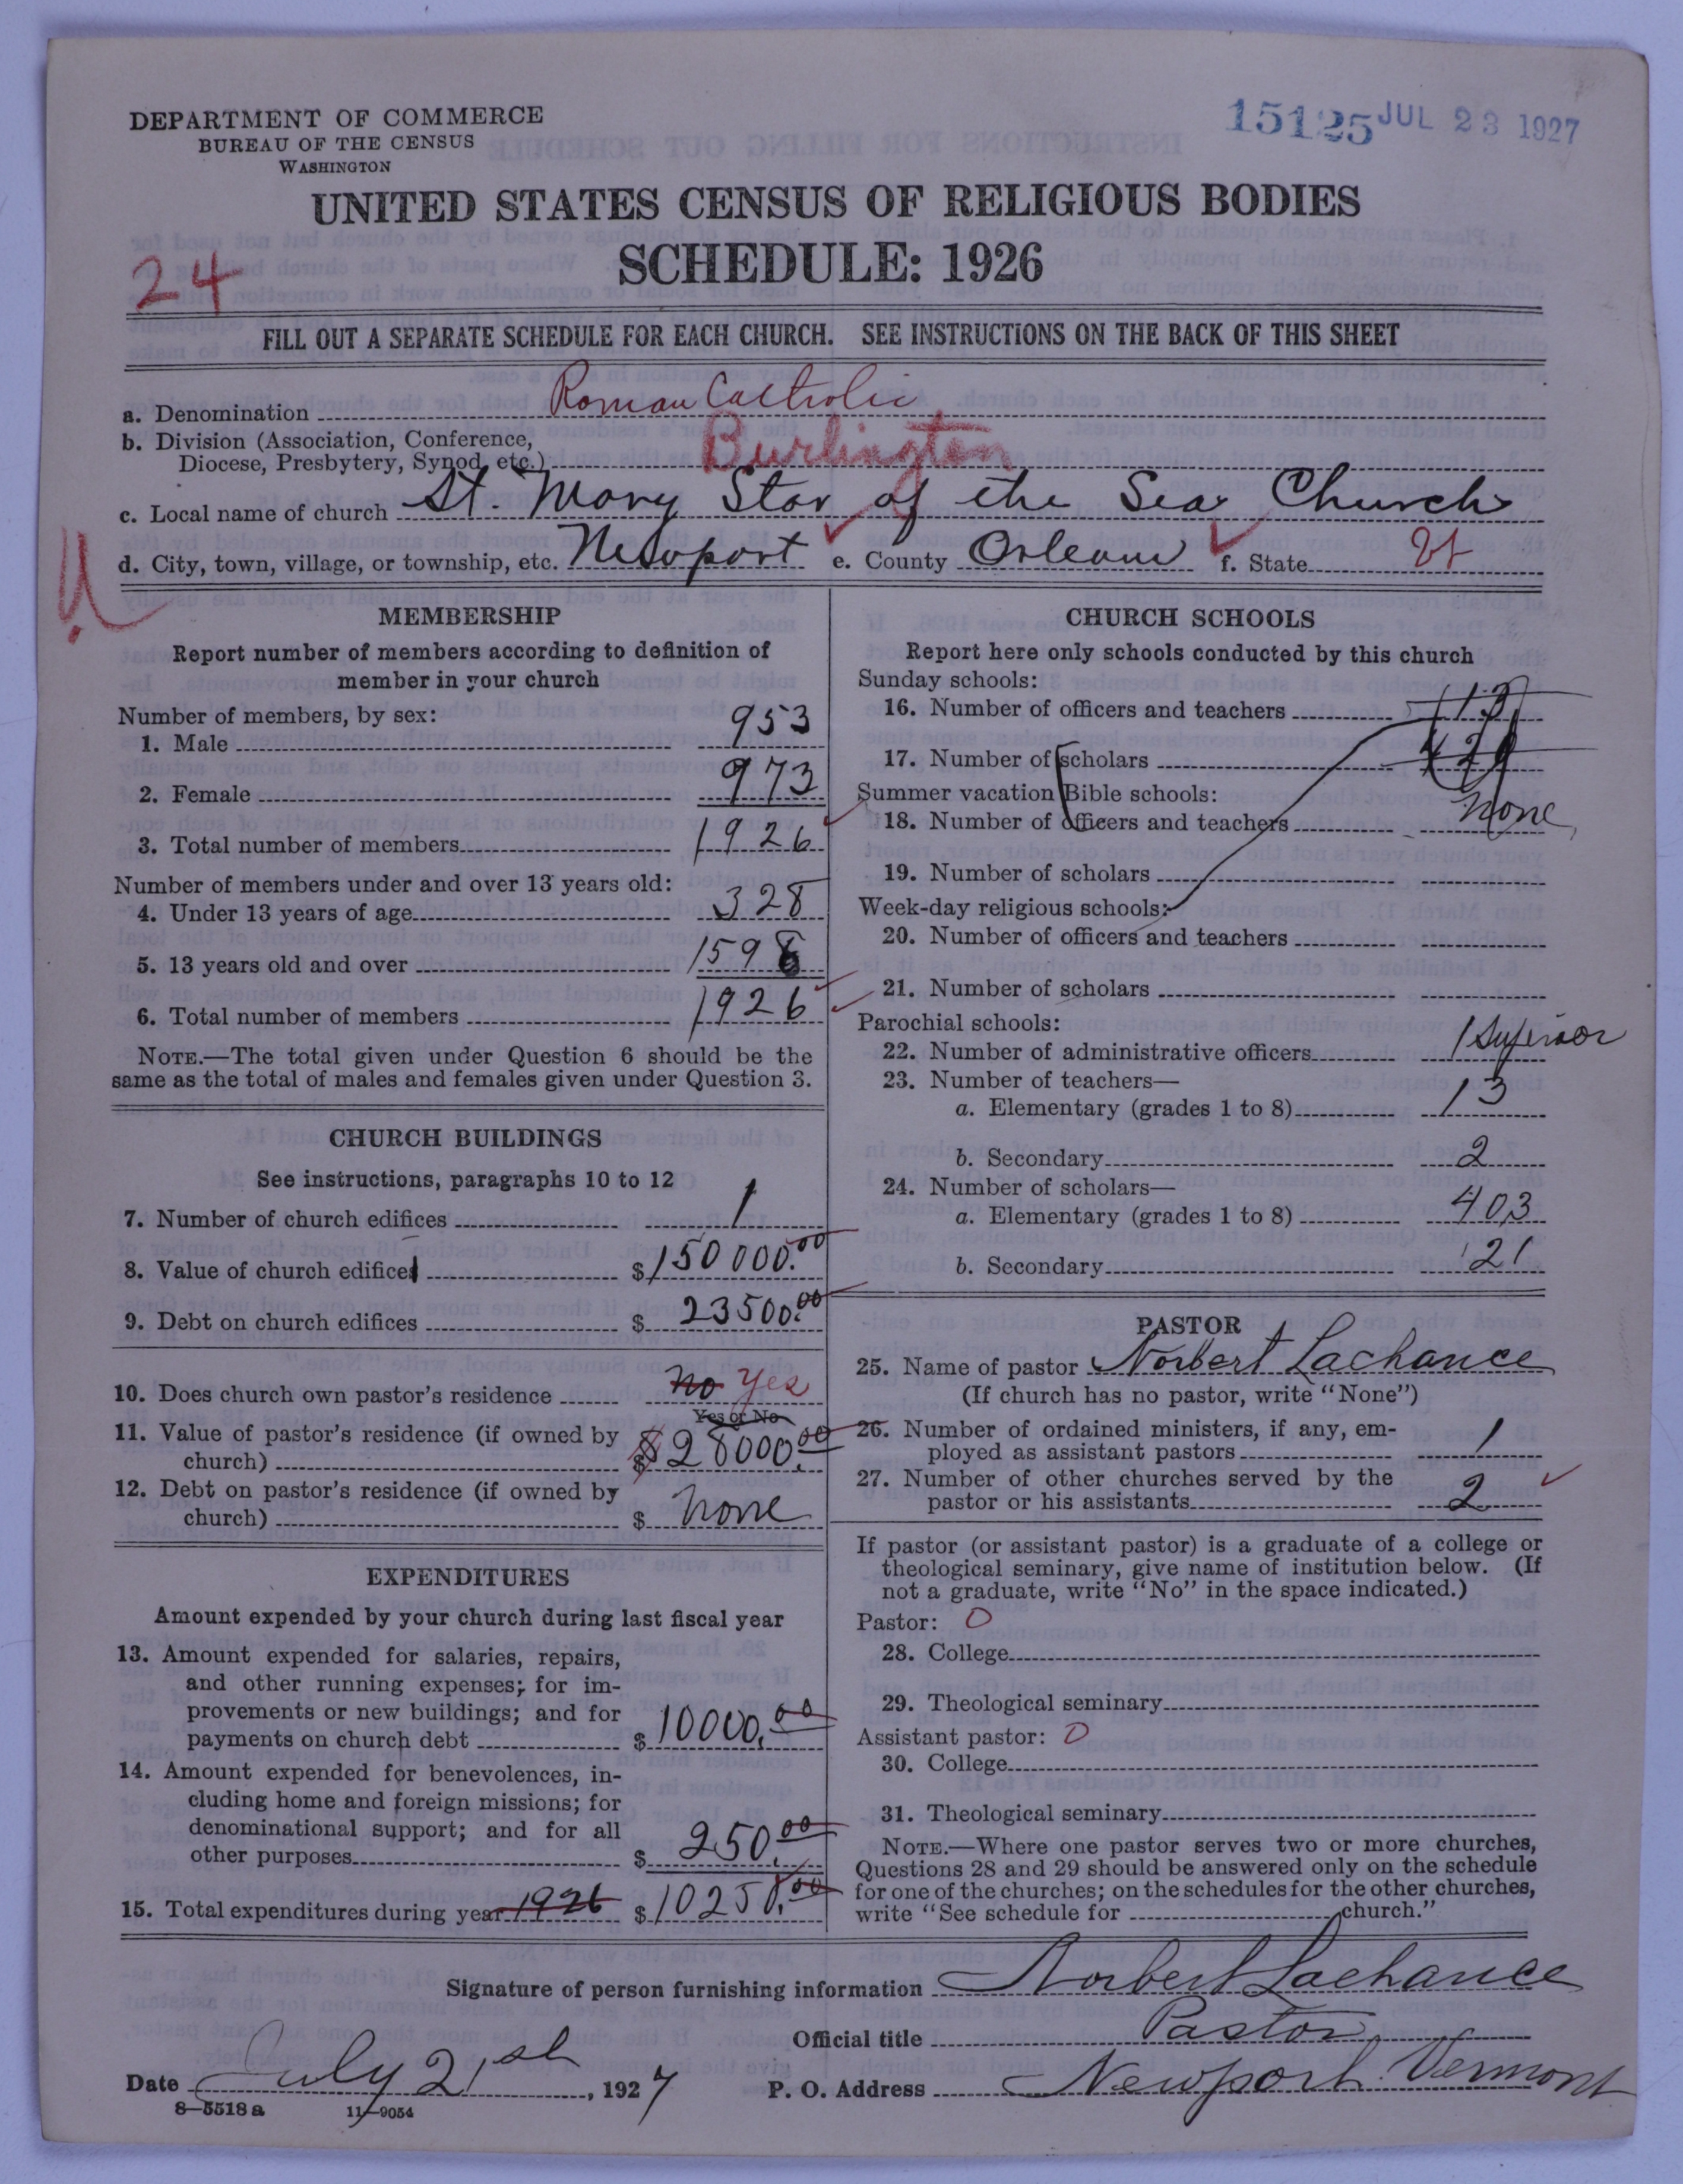 DEPARTMENT OF COMMERCE
BUREAU OF THE CENSUS
WASHINGTON
15125 JUL 23 1927
UNITED STATES CENSUS OF RELIGIOUS BODIES
SCHEDULE: 1926
24
FILL OUT A SEPARATE SCHEDULE FOR EACH CHURCH. SEE INSTRUCTIONS ON THE BACK OF THIS SHEET
a. Denomination Roman Catholic
b. Division (Association, Conference,
Diocese, Presbytery, Synod, etc.) Burlington
c. Local name of church St. Mary Star of the Sea Church
d. City, town, village, or township, etc. Newport e. County Orleans f. State Vt
MEMBERSHIP
Report number of members according to definition of
member in your church
Number of members, by sex:
1. Male 953
2. Female 973
3. Total number of members 1926
Number of members under and over 13 years old:
4. Under 13 years of age 328
5. 13 years old and over 1598
6. Total number of members 1926
NOTE.—The total given under Question 6 should be the
same as the total of males and females given under Question 3.
CHURCH BUILDINGS
See instructions, paragraphs 10 to 12
7. Number of church edifices 1
8. Value of church edifices $150000.00
9. Debt on church edifices $ 23500.00
10. Does church own pastor's residence no yes
Yes or No
11. Value of pastor's residence (if owned by
church) $ $28000.00
12. Debt on pastor's residence (if owned by
church) $ none
EXPENDITURES
Amount expended by your church during last fiscal year
13. Amount expended for salaries, repairs,
and other running expenses; for im-
provements or new buildings; and for
payments on church debt $ 10000.00
14. Amount expended for benevolences, in-
cluding home and foreign missions; for
denominational support; and for all
other purposes $ 250.00
15. Total expenditures during year 1926 $ 10250.00
CHURCH SCHOOLS
Report here only schools conducted by this church
Sunday schools:
16. Number of officers and teachers 13
17. Number of scholars
Summer vacation Bible schools:
18. Number of officers and teachers none
19. Number of scholars
Week-day religious schools:
20. Number of officers and teachers
21. Number of scholars
Parochial schools:
22. Number of administrative officers 1 Superior
23. Number of teachers—
a. Elementary (grades 1 to 8) 13
b. Secondary 2
24. Number of scholars—
a. Elementary (grades 1 to 8) 403
b. Secondary 21
PASTOR
25. Name of pastor Norbert Lachance
(If church has no pastor, write "None")
26. Number of ordained ministers, if any, em-
ployed as assistant pastors 1
27. Number of other churches served by the
pastor or his assistants 2
If pastor (or assistant pastor) is a graduate of a college or
theological seminary, give name of institution below. (If
not a graduate, write "No" in the space indicated.)
Pastor: 0
28. College
29. Theological seminary
Assistant pastor: 0
30. College
31. Theological seminary
NOTE.—Where one pastor serves two or more churches,
Questions 28 and 29 should be answered only on the schedule
for one of the churches; on the schedules for the other churches,
write "See schedule for church."
Signature of person furnishing information Norbert Lachance
Official title Pastor
Date July 21st, 1927 P. O. Address Newport Vermont
8—5518 a 11—9054